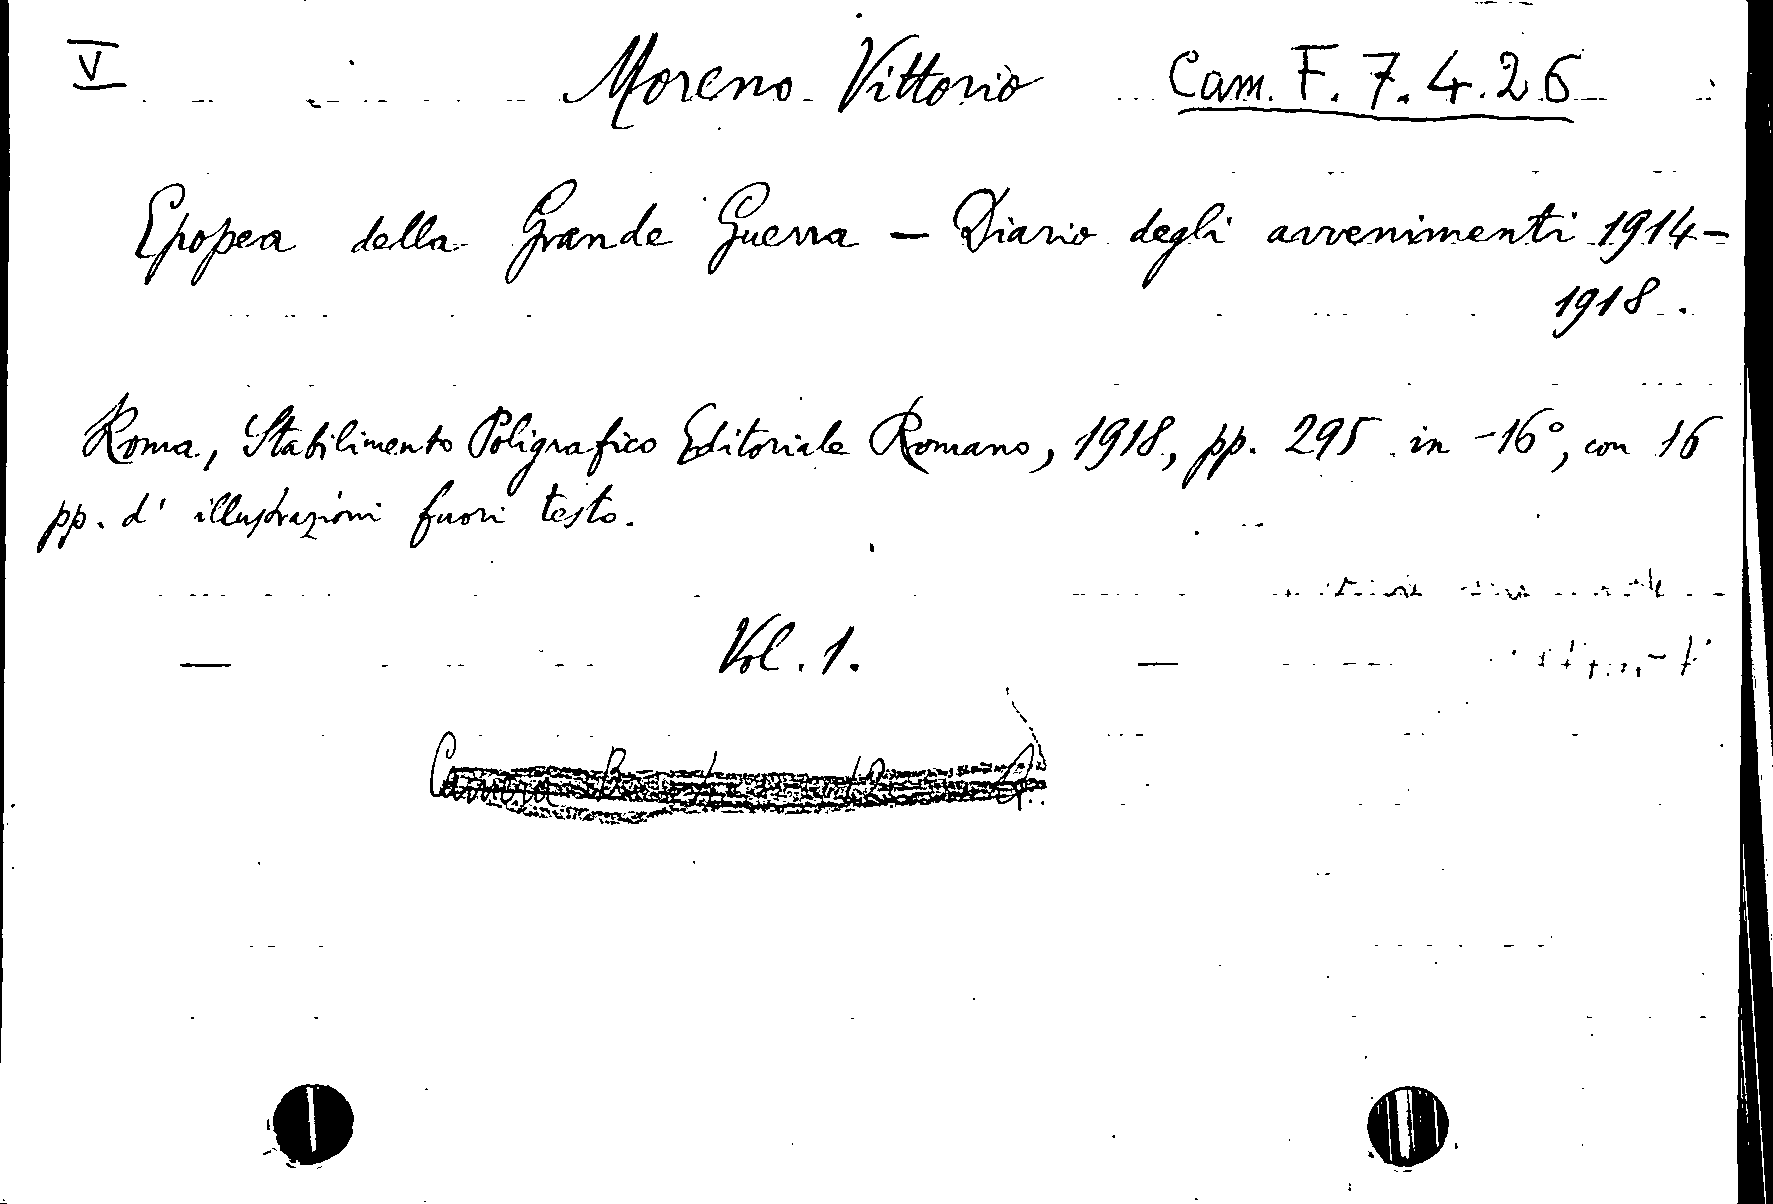 V Moreno Vittorio Cam. F. 7.4.26
Epopea della Grande Guerra – Diario degli avvenimenti 1914-
1918.
Roma, Stabilimento Poligrafico Editoriale Romano, 1918, pp. 295 in -16°, con 16
pp. d' illustrazioni fuori testo.
Vol. 1.
Camera